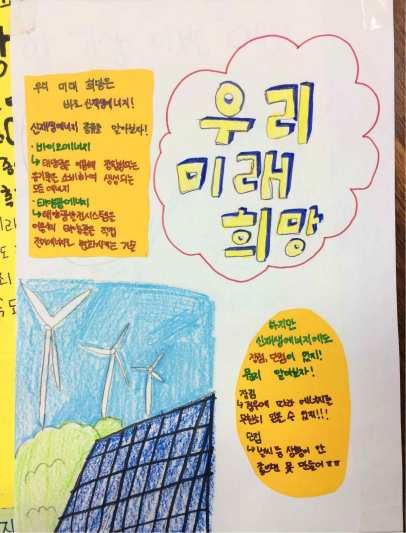 우리
미래
희망
우리 미래 희망은
바로 신재생에너지!
신재생에너지 종류를 알아보자!
· 바이오에너지
↳ 태양광을 이용해 광합성되는
유기물을 소비하여 생성되는
모든 에너지
· 태양광에너지
↳ 태양광발전시스템을
이용해 태양광을 직접
전기에너지로 변화시키는 기술
하지만
신재생에너지에도
장점, 단점이 있지!
알아보자!
장점
↳ 경우에 따라 에너지를
무한히 얻을 수 있지!!!
단점
↳ 날씨 등 상황이 안
좋으면 못 만들어 ㅠㅠ